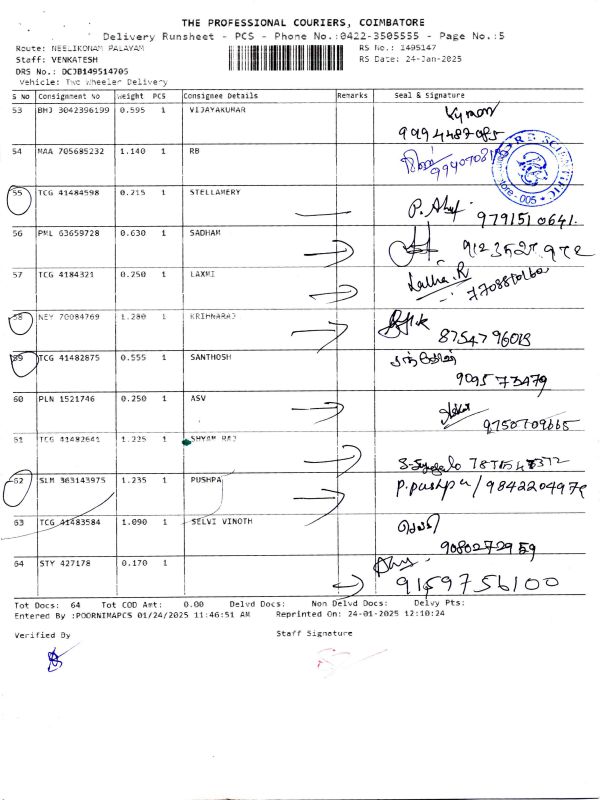 THE PROFESSIONAL COURIERS, COIMBATORE
Delivery Runsheet - PCS - Phone No.:0422-3505555 - Page No.:5
Route: NEELIKONAM PALAYAM RS No.: 1495147
Staff: VENKATESH RS Date: 24-Jan-2025
DRS No.: DCJB149514705
Vehicle: Two Wheeler Delivery
S No Consignment No Weight PCS Consignee Details Remarks Seal & Signature
53 BHJ 3042396199 0.595 1 VIJAYAKUMAR
9994487085
54 MAA 705685232 1.140 1 RB
55 TCG 41484598 0.215 1 STELLAMERY
9791510641
56 PML 63659728 0.630 1 SADHAM
57 TCG 4184321 0.250 1 LAXMI Latha.R
58 NEY 70084769 1.280 1 KRIHNARAJ
8754796013
59 TCG 41482875 0.555 1 SANTHOSH
9095773479
60 PLN 1521746 0.250 1 ASV
61 TCG 41482641 1.225 1 SHYAM RAJ
62 SLM 363143975 1.235 1 PUSHPA P.pushpa / 9842204979
63 TCG 41483584 1.090 1 SELVI VINOTH
9080272959
64 STY 427178 0.170 1
9159756100
Tot Docs: 64 Tot COD Amt: 0.00 Delvd Docs: Non Delvd Docs: Delvy Pts:
Entered By :POORNIMAPCS 01/24/2025 11:46:51 AM Reprinted On: 24-01-2025 12:10:24
Verified By Staff Signature